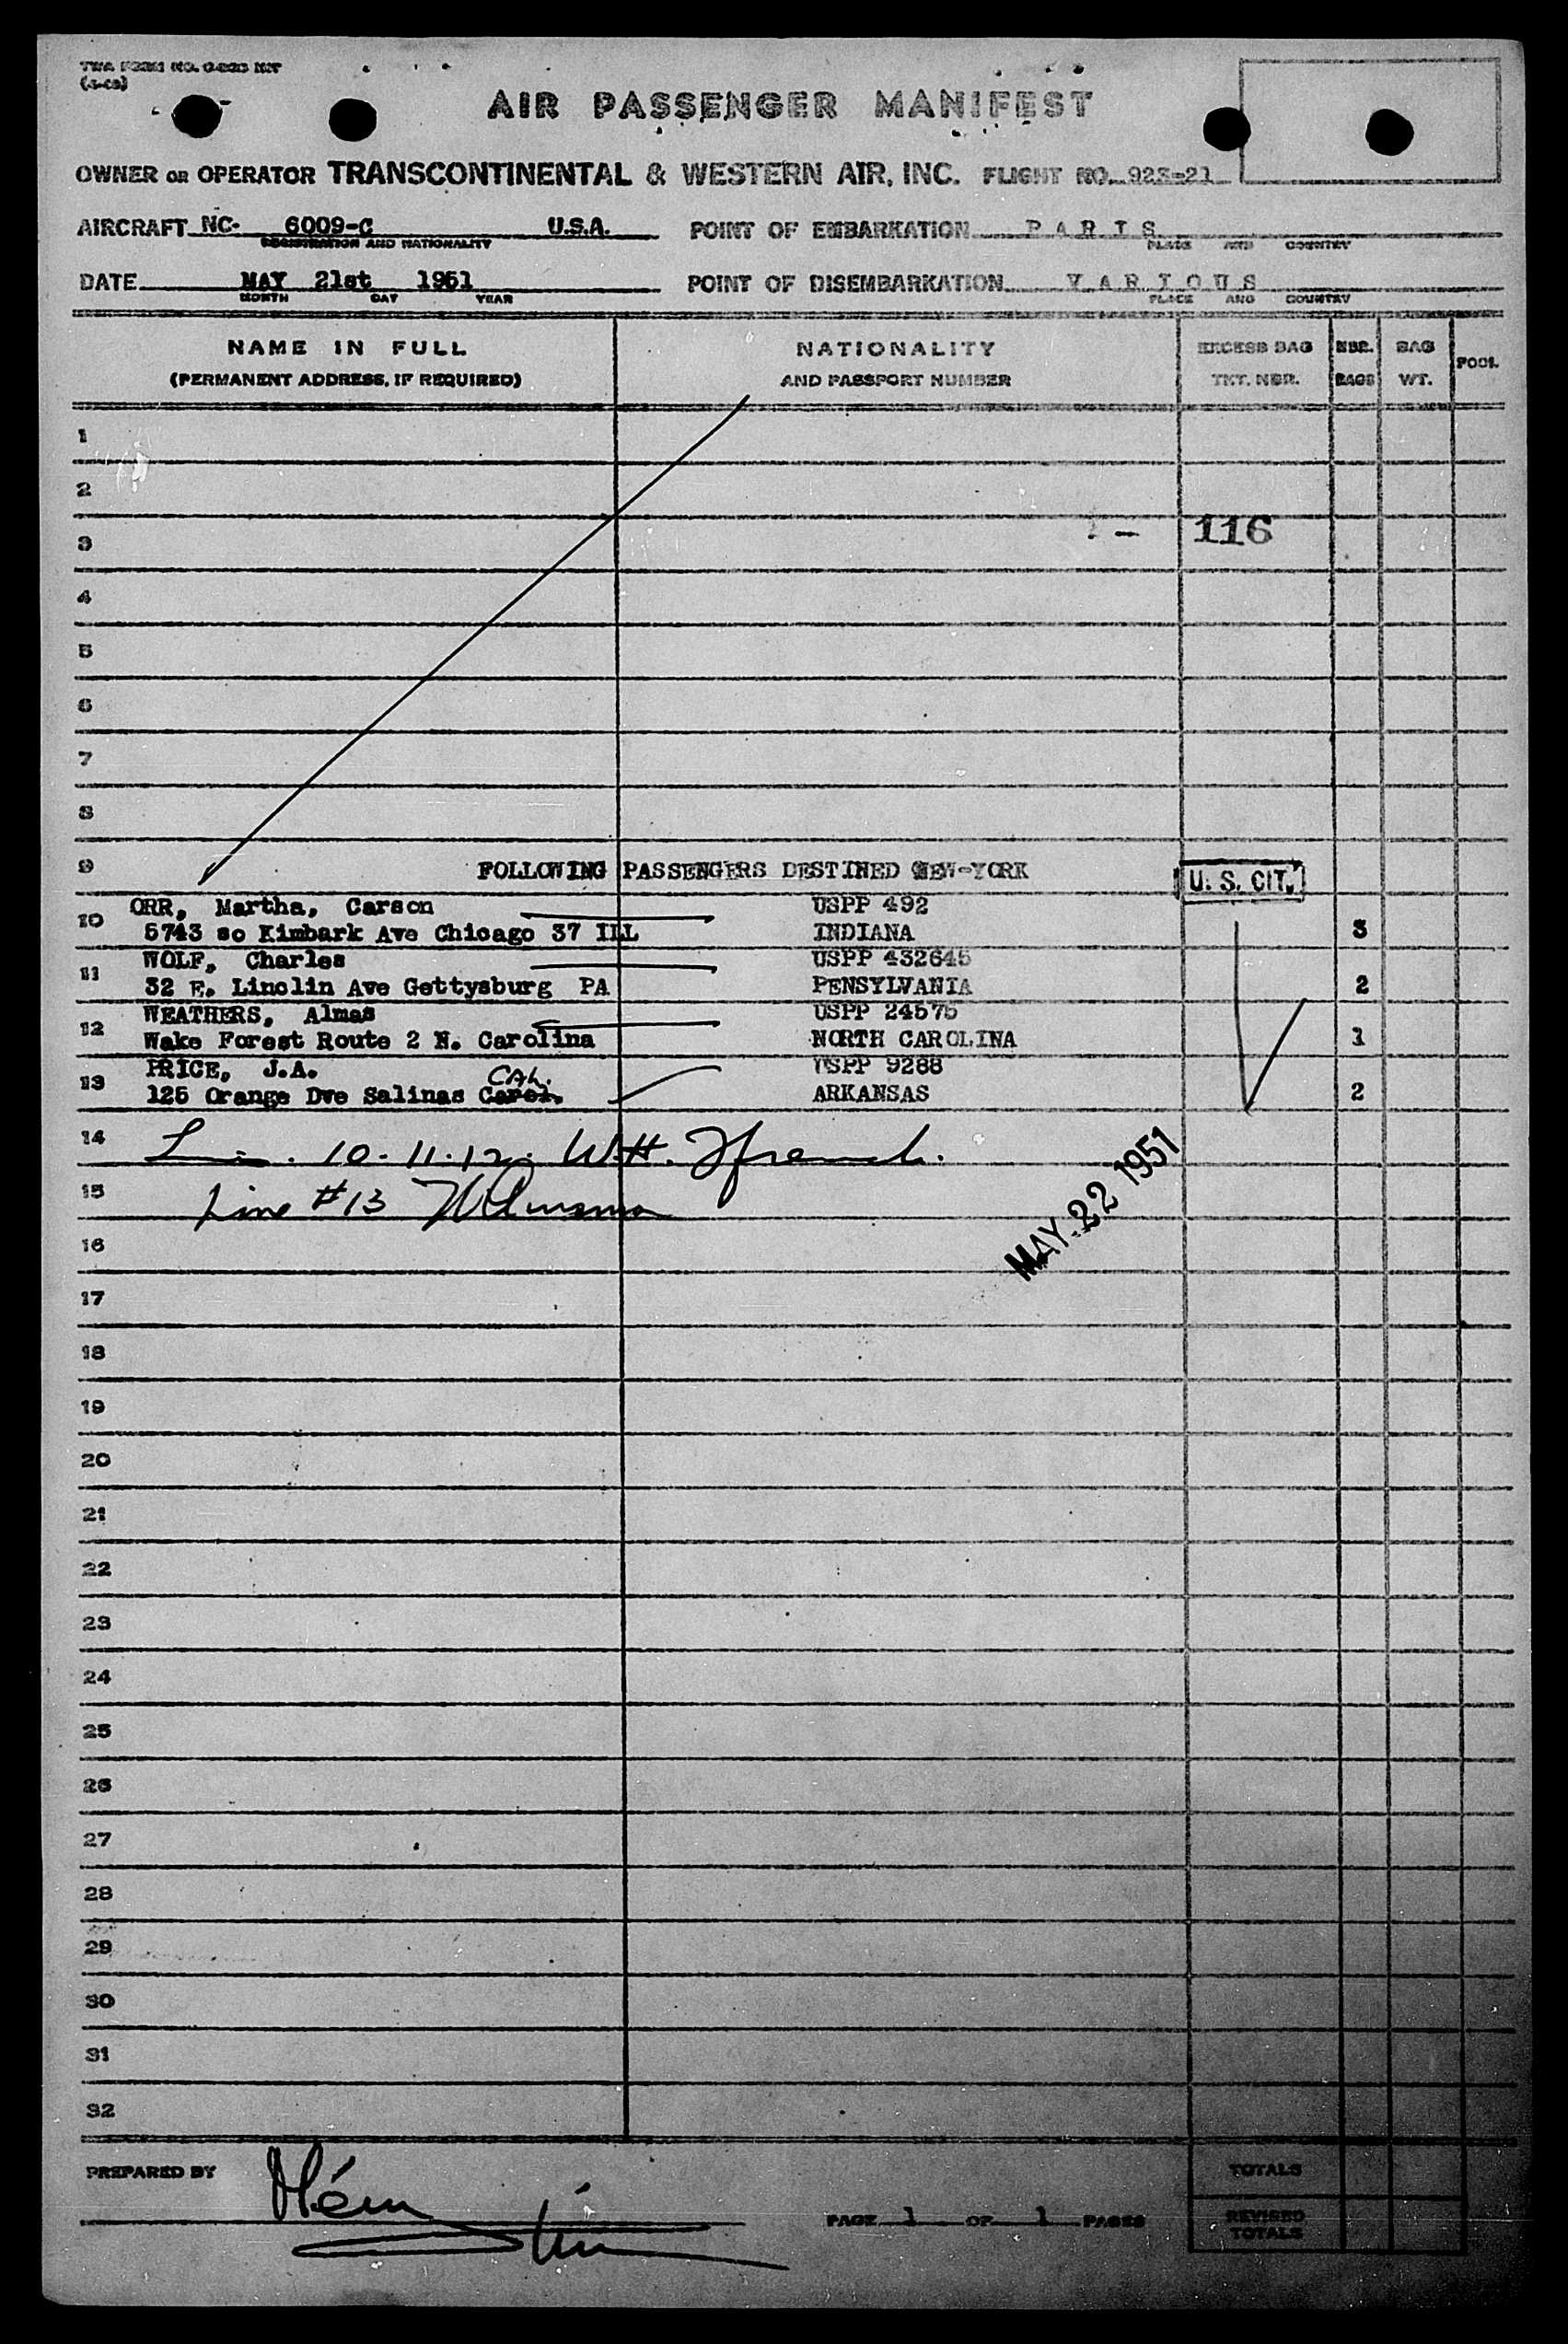 (4-48)
AIR PASSENGER MANIFEST
OWNER OR OPERATOR TRANSCONTINENTAL & WESTERN AIR, INC. FLIGHT NO. 923-21
AIRCRAFT NC- 6009-C U.S.A. POINT OF EMBARKATION PARIS
REGISTRATION AND NATIONALITY PLACE AND COUNTRY
DATE MAY 21st 1951 POINT OF DISEMBARKATION VARIOUS
MONTH DAY YEAR PLACE AND COUNTRY
NAME IN FULL NATIONALITY EXCESS BAG NBR. BAG POOL
(PERMANENT ADDRESS, IF REQUIRED) AND PASSPORT NUMBER TKT. NBR. BAGS WT.
1
2
3 - 116
4
5
6
7
8
9 FOLLOWING PASSENGERS DESTINED NEW-YORK U. S. CIT.
10 ORR, Martha, Carson USPP 492
5743 so Kimbark Ave Chicago 37 ILL INDIANA 3
11 WOLF, Charles USPP 432645
32 E. Linolin Ave Gettysburg PA PENSYLVANIA 2
12 WEATHERS, Almas USPP 24575
Wake Forest Route 2 N. Carolina NORTH CAROLINA 1
13 PRICE, J.A. USPP 9288
CAL.
125 Orange Dve Salinas Carol. ARKANSAS 2
14 10-11-12. W.H.
15 Line #13
MAY 22 1951
16
17
18
19
20
21
22
23
24
25
26
27
28
29
30
31
32
PREPARED BY TOTALS
PAGE 1 OF 1 PAGES REVISED TOTALS